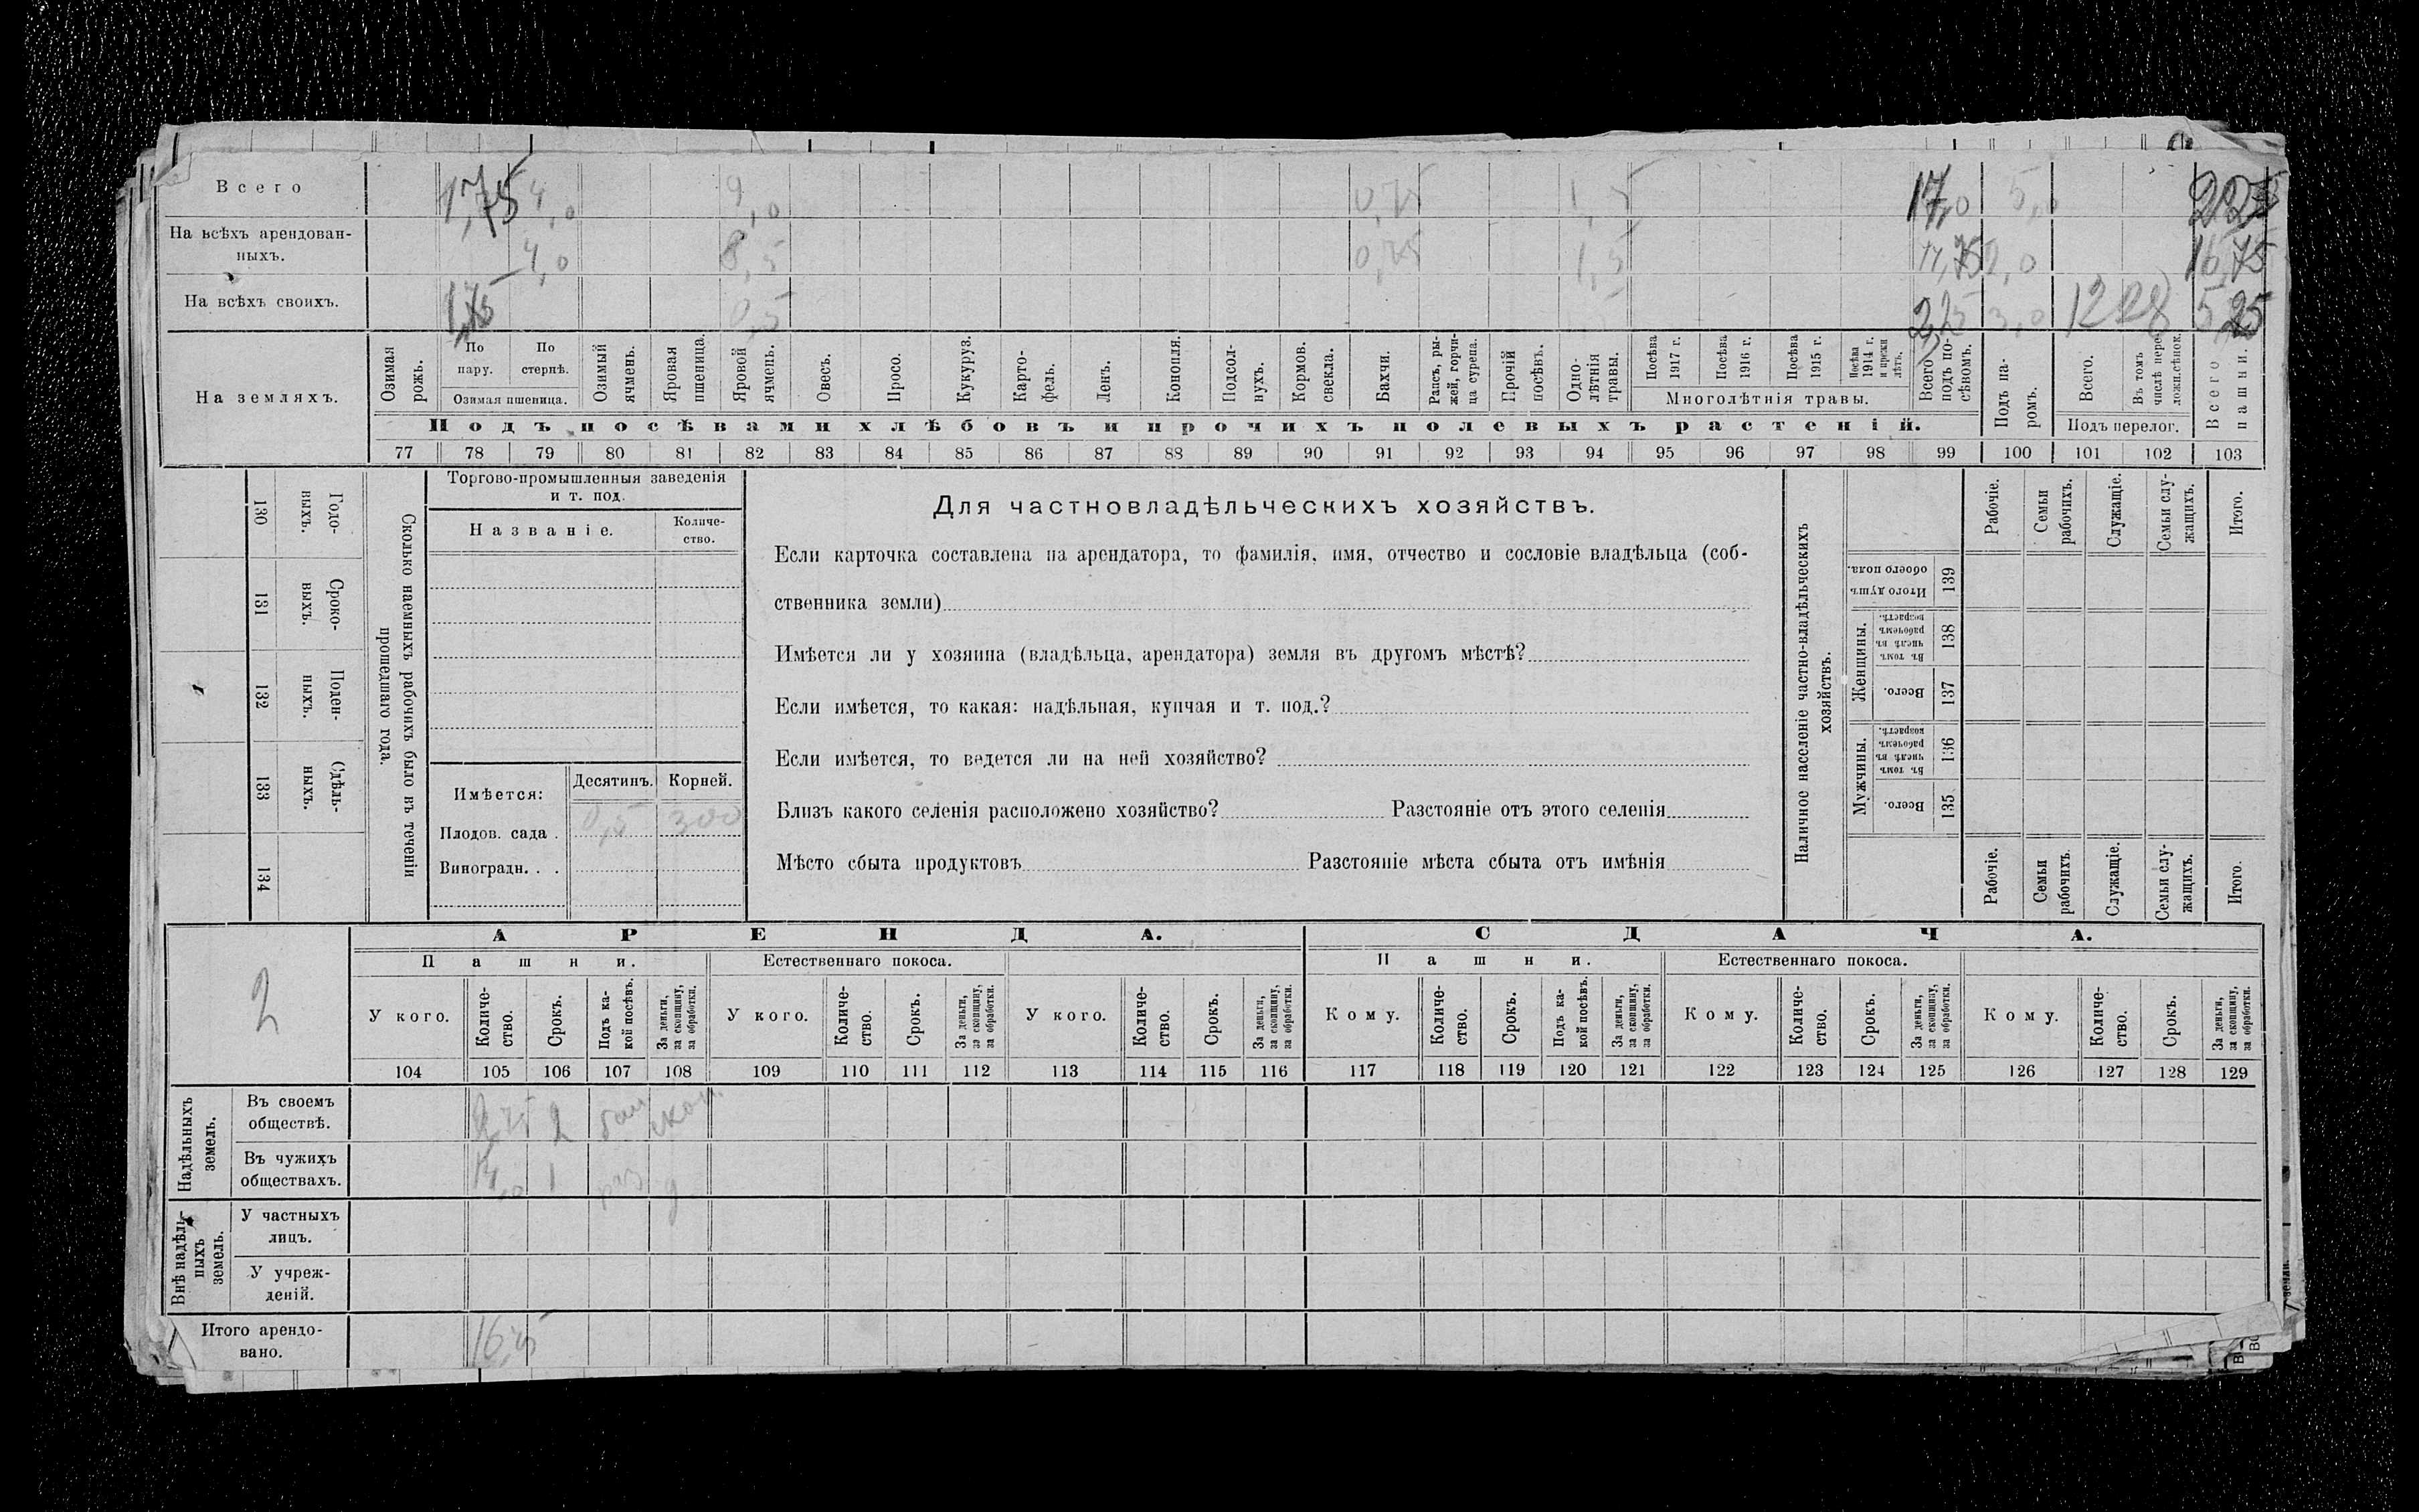 Всего 1,75 4,0 9,0 0,75 1,5 17,0 5,0
На всѣхъ арендован-
ныхъ. 4,0 8,5 0,75 1,5 14,75 2,0 16,75
На всѣхъ своихъ. 1,75 0,5 2,25 3,0 1228 5,25
На земляхъ.
Озимая рожь.
По пару.
По стернѣ.
Озимая пшеница.
Озимый ячмень.
Яровая пшеница.
Яровой ячмень.
Овесъ.
Просо.
Кукуруз.
Карто-
фель.
Ленъ.
Конопля.
Подсол-
нухъ.
Кормов.
свекла.
Бахчи.
Рапсъ, ры-
жей, горчи-
ца сурепа.
Прочій
посѣвъ.
Одно-
лѣтнія
травы.
Посѣва
1917 г.
Посѣва
1916 г.
Посѣва
1915 г.
Посѣва
1914 г.
и прежн
лѣтъ.
Многолѣтнія травы.
Всего
подъ по-
сѣвомъ.
Подъ па-
ромъ.
Всего.
Въ томъ
числѣ пере-
ложн.сѣнок.
Подъ перелог.
Всего
пашни.
Подъ посѣвами хлѣбовъ и прочихъ полевыхъ растеній.
77 78 79 80 81 82 83 84 85 86 87 88 89 90 91 92 93 94 95 96 97 98 99 100 101 102 103
130 Годо-
выхъ.
131 Сроко-
выхъ.
132 Поден-
ныхъ.
133 Сдѣль-
ныхъ.
134
Сколько наемныхъ рабочихъ было въ теченіи
прошедшаго года.
Торгово-промышленныя заведенія
и т. под.
Названіе.
Количе-
ство.
Имѣется:
Десятинъ. Корней.
Плодов. сада . 0,5 300
Виноградн. . .
Для частновладѣльческихъ хозяйствъ.
Если карточка составлена на арендатора, то фамилія, имя, отчество и сословіе владѣльца (соб-
ственника земли)
Имѣется ли у хозяина (владѣльца, арендатора) земля въ другомъ мѣстѣ?
Если имѣется, то какая: надѣльная, купчая и т. под.?
Если имѣется, то ведется ли на ней хозяйство?
Близъ какого селенія расположено хозяйство? Разстояніе отъ этого селенія
Мѣсто сбыта продуктовъ Разстояніе мѣста сбыта отъ имѣнія
Наличное населеніе частно-владѣльческихъ
хозяйствъ.
Рабочіе.
Семьи
рабочихъ.
Служащіе.
Семьи слу-
жащихъ.
Итого.
Итого душъ
обоего пола.
139
Женщины.
Въ томъ
числѣ въ
рабочемъ
возрастѣ.
138
Всего.
137
Мужчины.
Въ томъ
числѣ въ
рабочемъ
возрастѣ.
136
Всего.
135
Рабочіе.
Семьи
рабочихъ.
Служащіе.
Семьи слу-
жащихъ.
Итого.
2
АРЕНДА.
СДАЧА.
Пашни.
Естественнаго покоса.
Пашни.
Естественнаго покоса.
У кого.
Количе-
ство.
Срокъ.
Подъ ка-
кой посѣвъ.
За деньги,
за скопщину,
за обработки.
У кого.
Количе-
ство.
Срокъ.
За деньги,
за скопщину,
за обработки.
У кого.
Количе-
ство.
Срокъ.
За деньги,
за скопщину,
за обработки.
Кому.
Количе-
ство.
Срокъ.
Подъ ка-
кой посѣвъ.
За деньги,
за скопщину,
за обработки.
Кому.
Количе-
ство.
Срокъ.
За деньги,
за скопщину,
за обработки.
Кому.
Количе-
ство.
Срокъ.
За деньги,
за скопщину,
за обработки.
104 105 106 107 108 109 110 111 112 113 114 115 116 117 118 119 120 121 122 123 124 125 126 127 128 129
Надѣльныхъ
земель.
Въ своемъ
обществѣ. 2,75 2 скоп.
Въ чужихъ
обществахъ. 14,0 1 раз д
Внѣ надѣль-
ныхъ
земель.
У частныхъ
лицъ.
У учреж-
деній.
Итого арендо-
вано. 16,75